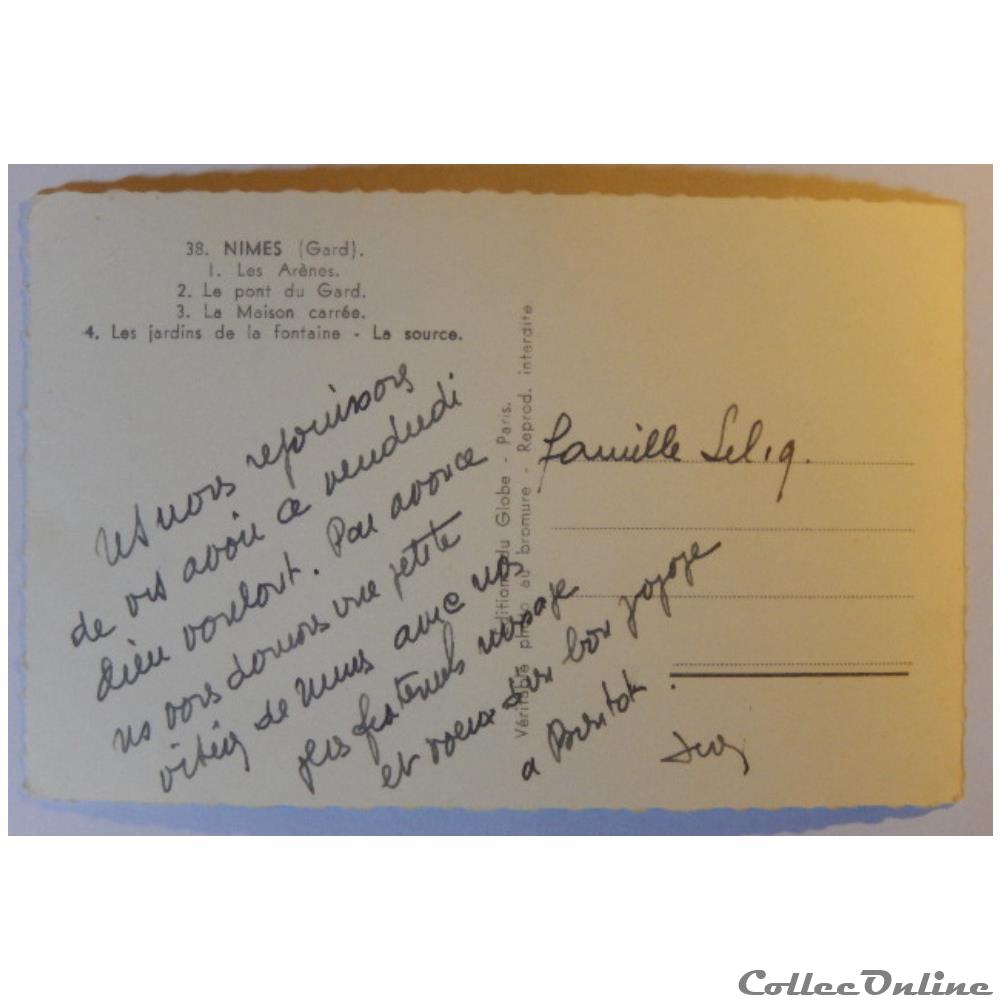 38. NIMES (Gard).
1. Les Arènes.
2. Le pont du Gard.
3. La Maison carrée.
4. Les jardins de la fontaine - La source.
nous rejouissons
de vs avoir ce vendredi
dieu voulant. Par avance
ns vous donnons une petite
de Nimes avec nos
plus fraternels message
et voeux d'un bon voyage
a Bientot.
Famille Selig.
Editions du Globe - Paris.
Véritable photo au bromure - Reprod. interdite
CollecOnline